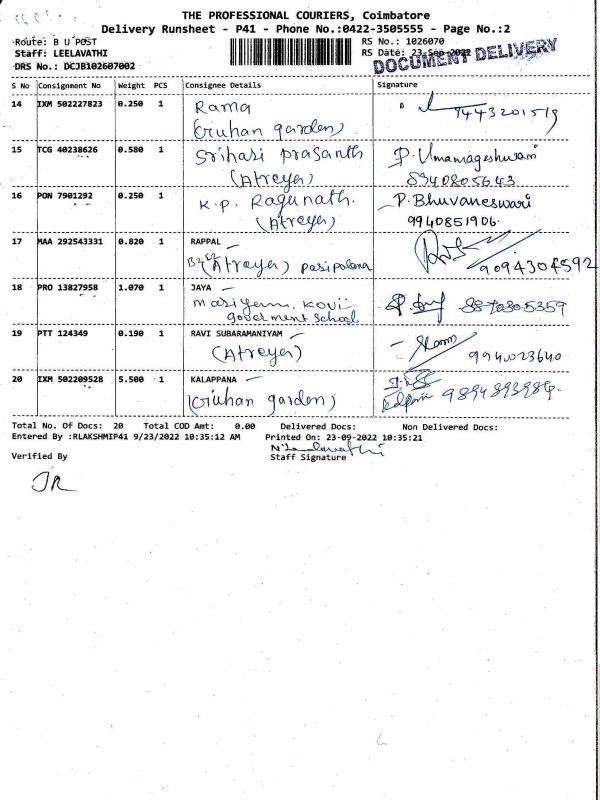 THE PROFESSIONAL COURIERS, Coimbatore
Delivery Runsheet - P41 - Phone No.:0422-3505555 - Page No.:2
Route: B U POST
RS No.: 1026070
Staff: LEELAVATHI
RS Date: 23-Sep-2022
DRS No.: DCJB102607002
DOCUMENT DELIVERY
S No Consignment No Weight PCS Consignee Details Signature
14 IXM 502227823 0.250 1 Rama
(Gruhan garden) 9443201519
15 TCG 40238626 0.580 1 Srihari prasanth P. Umamageshwari
(Atreya) 8940805643
16 PON 7901292 0.250 1 K.P. Ragunath. P. Bhuvaneswari
(Atreya) 9940851906.
17 MAA 292543331 0.820 1 RAPPAL
(Atreya) 9094304592
18 PRO 13827958 1.070 1 JAYA
Mariyamn. Kovil
goverment School
19 PTT 124349 0.190 1 RAVI SUBARAMANIYAM
(Atreya) 9940023640
20 IXM 502209528 5.500 1 KALAPPANA
(Gruhan garden) 9894893984.
Total No. Of Docs: 20 Total COD Amt: 0.00 Delivered Docs: Non Delivered Docs:
Entered By :RLAKSHMIP41 9/23/2022 10:35:12 AM Printed On: 23-09-2022 10:35:21
Verified By Staff Signature
JR